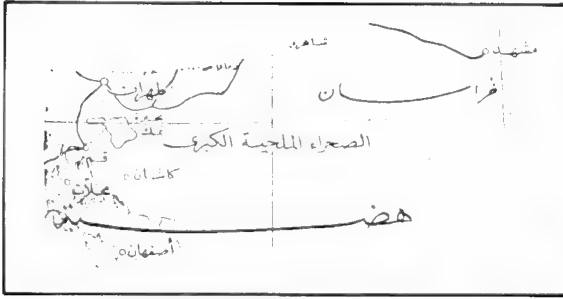 مشهد
شاهرود
طهران
خراسان
الصحراء الملحية الكبرى
قم
كاشان
محلات
هضبة
أصفهان